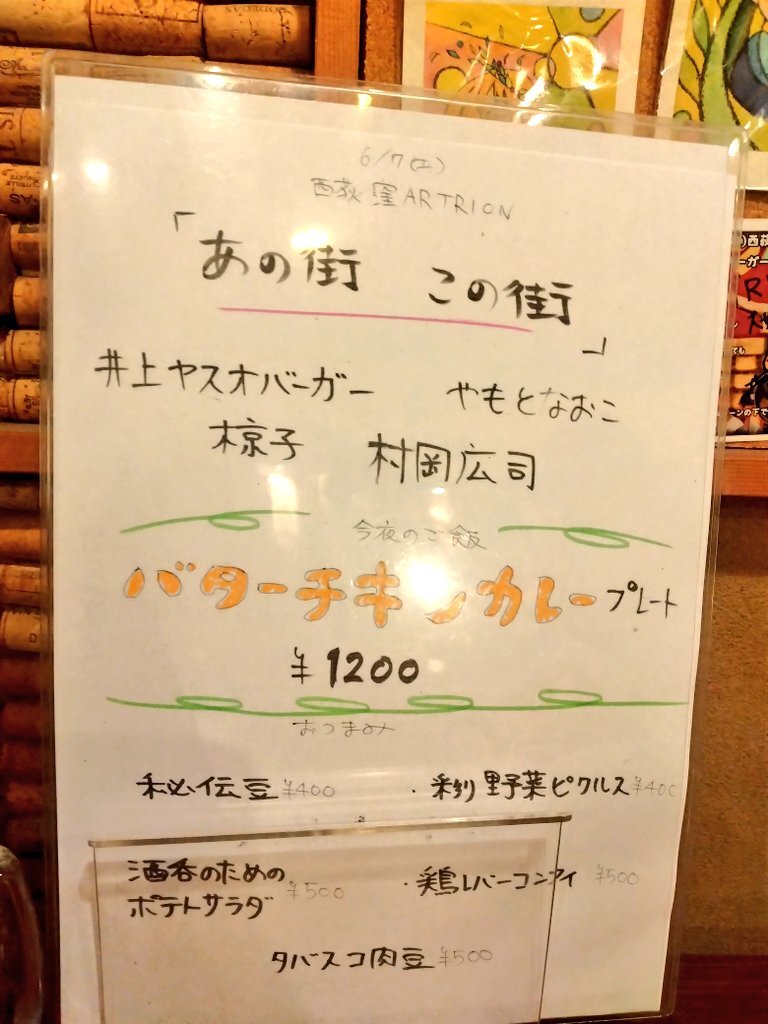 6/7(土)
西荻窪ARTRION
「あの街 この街」
井上ヤスオバーガー やもとなおこ
椋子 村岡広司
今夜のご飯
バターチキンカレープレート
¥1200
おつまみ
秘伝豆 ¥400 ・彩り野菜ピクルス ¥400
酒呑のための
ポテトサラダ ¥500 ・鶏レバーコンフィ ¥500
タバスコ肉豆 ¥500